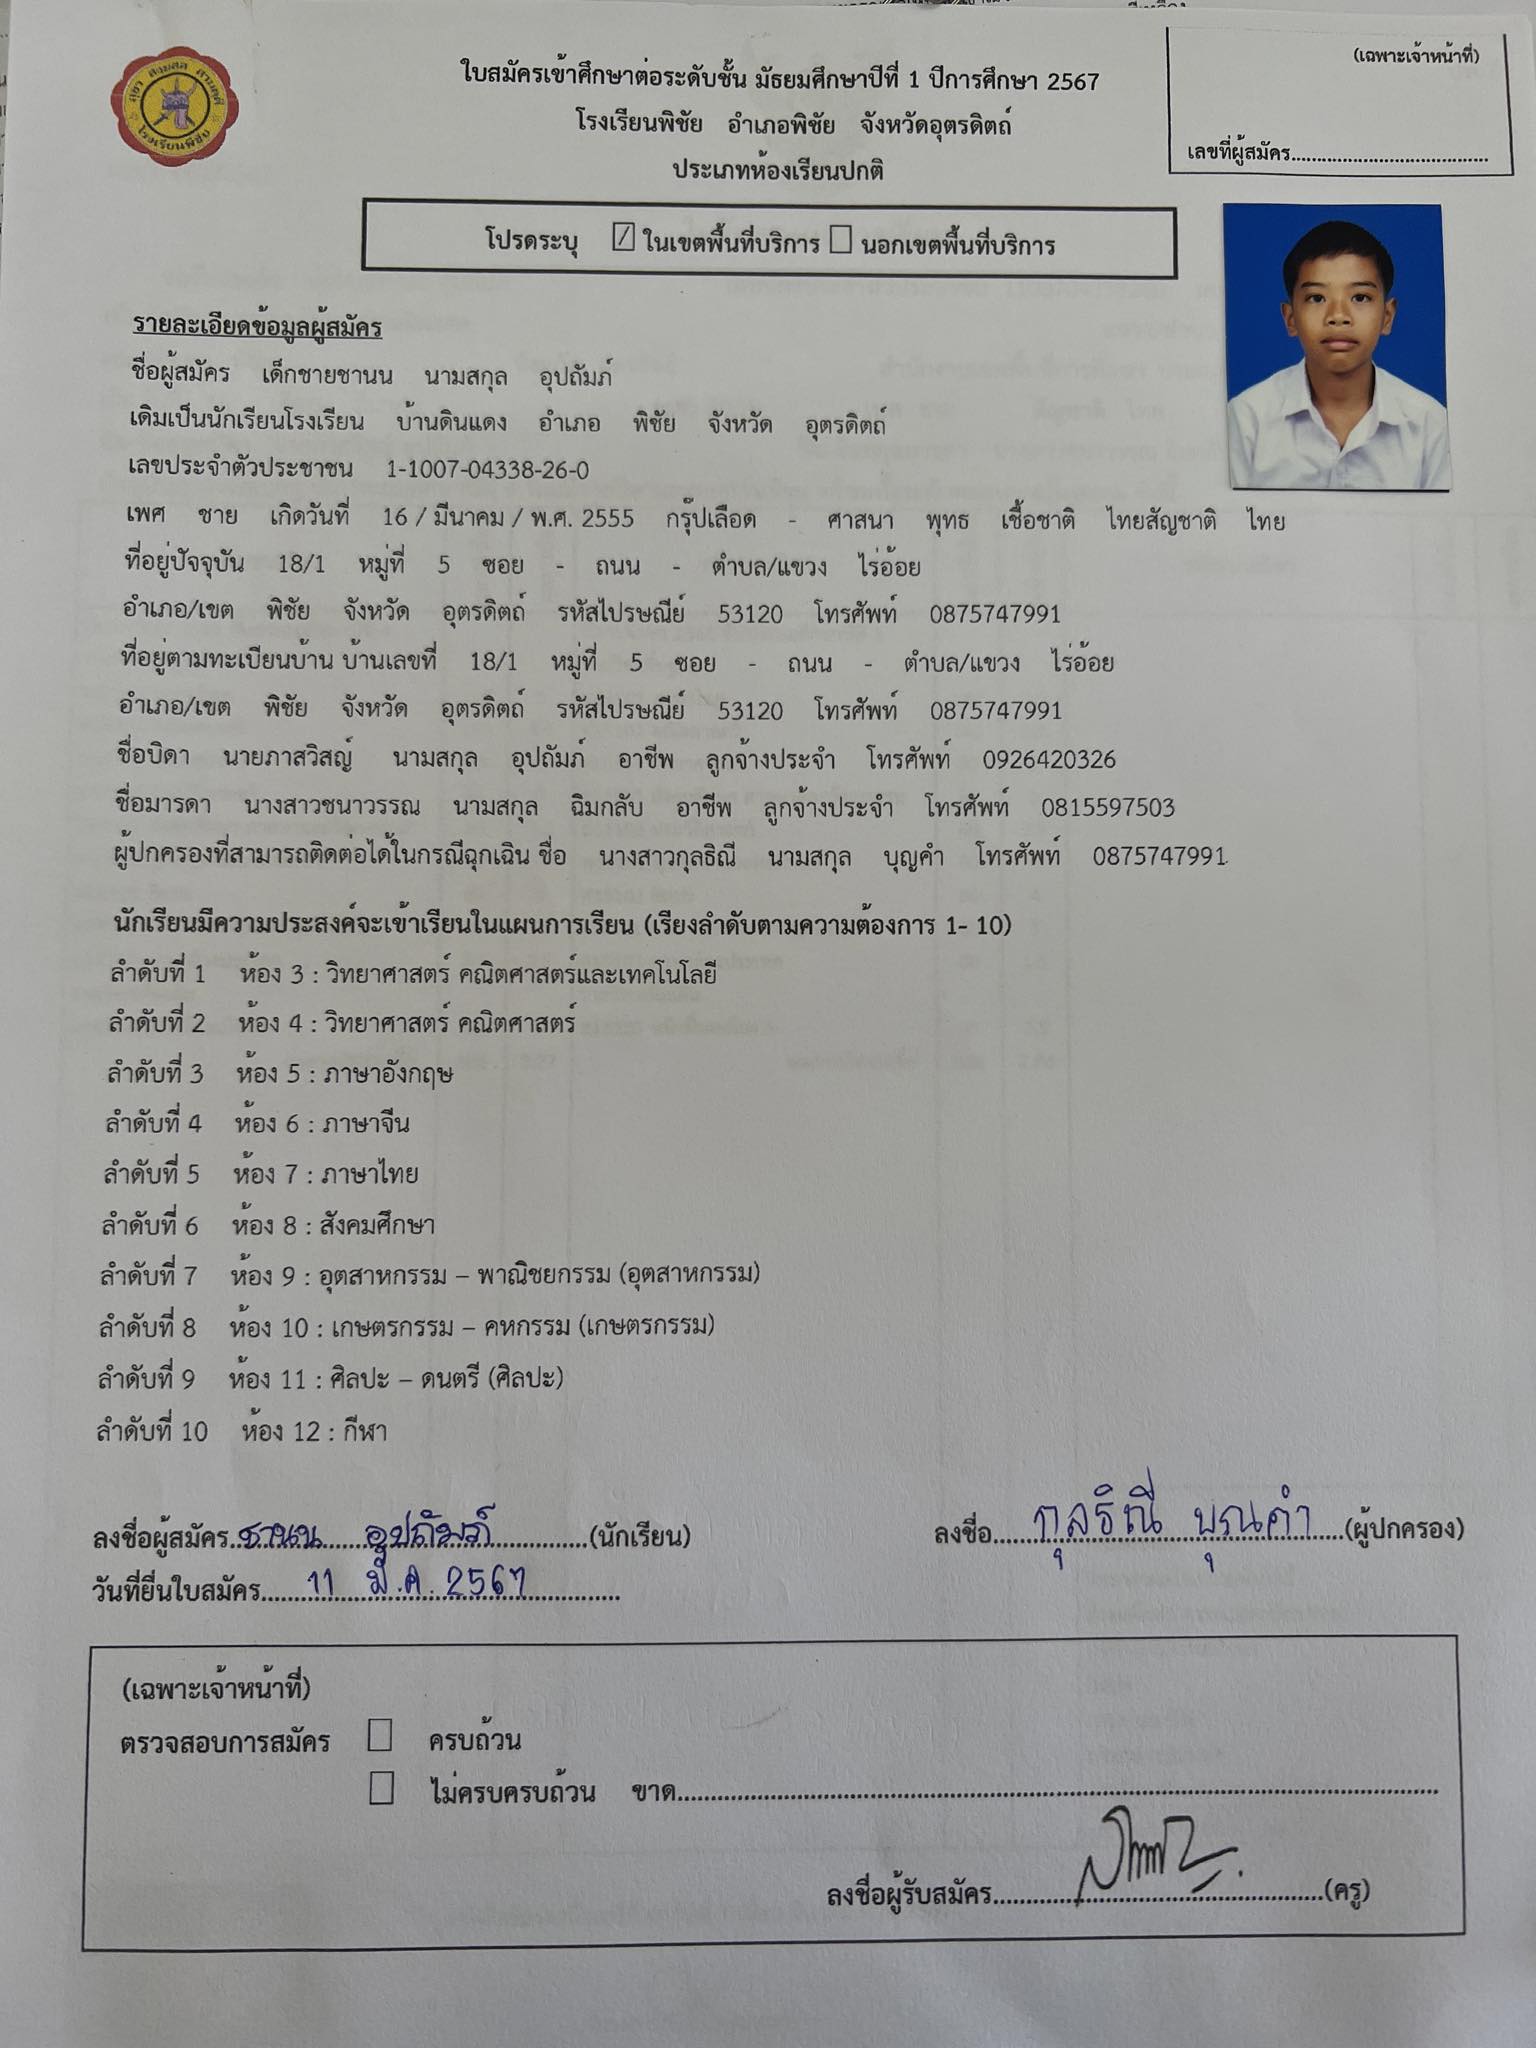 (เฉพาะเจ้าหน้าที่)
ใบสมัครเข้าศึกษาต่อระดับชั้น มัธยมศึกษาปีที่ 1 ปีการศึกษา 2567
โรงเรียนพิชัย อำเภอพิชัย จังหวัดอุตรดิตถ์
เลขที่ผู้สมัคร......................................
ประเภทห้องเรียนปกติ
โรงเรียนพิชัย
โปรดระบุ ☑ ในเขตพื้นที่บริการ ☐ นอกเขตพื้นที่บริการ
รายละเอียดข้อมูลผู้สมัคร
ชื่อผู้สมัคร เด็กชายชานน นามสกุล อุปถัมภ์
เดิมเป็นนักเรียนโรงเรียน บ้านดินแดง อำเภอ พิชัย จังหวัด อุตรดิตถ์
เลขประจำตัวประชาชน 1-1007-04338-26-0
เพศ ชาย เกิดวันที่ 16 / มีนาคม / พ.ศ. 2555 กรุ๊ปเลือด - ศาสนา พุทธ เชื้อชาติ ไทยสัญชาติ ไทย
ที่อยู่ปัจจุบัน 18/1 หมู่ที่ 5 ซอย - ถนน - ตำบล/แขวง ไร่อ้อย
อำเภอ/เขต พิชัย จังหวัด อุตรดิตถ์ รหัสไปรษณีย์ 53120 โทรศัพท์ 0875747991
ที่อยู่ตามทะเบียนบ้าน บ้านเลขที่ 18/1 หมู่ที่ 5 ซอย - ถนน - ตำบล/แขวง ไร่อ้อย
อำเภอ/เขต พิชัย จังหวัด อุตรดิตถ์ รหัสไปรษณีย์ 53120 โทรศัพท์ 0875747991
ชื่อบิดา นายภาสวิสญ์ นามสกุล อุปถัมภ์ อาชีพ ลูกจ้างประจำ โทรศัพท์ 0926420326
ชื่อมารดา นางสาวชนาวรรณ นามสกุล ฉิมกลับ อาชีพ ลูกจ้างประจำ โทรศัพท์ 0815597503
ผู้ปกครองที่สามารถติดต่อได้ในกรณีฉุกเฉิน ชื่อ นางสาวกุลธิณี นามสกุล บุญคำ โทรศัพท์ 0875747991
นักเรียนมีความประสงค์จะเข้าเรียนในแผนการเรียน (เรียงลำดับตามความต้องการ 1- 10)
ลำดับที่ 1 ห้อง 3 : วิทยาศาสตร์ คณิตศาสตร์และเทคโนโลยี
ลำดับที่ 2 ห้อง 4 : วิทยาศาสตร์ คณิตศาสตร์
ลำดับที่ 3 ห้อง 5 : ภาษาอังกฤษ
ลำดับที่ 4 ห้อง 6 : ภาษาจีน
ลำดับที่ 5 ห้อง 7 : ภาษาไทย
ลำดับที่ 6 ห้อง 8 : สังคมศึกษา
ลำดับที่ 7 ห้อง 9 : อุตสาหกรรม – พาณิชยกรรม (อุตสาหกรรม)
ลำดับที่ 8 ห้อง 10 : เกษตรกรรม – คหกรรม (เกษตรกรรม)
ลำดับที่ 9 ห้อง 11 : ศิลปะ – ดนตรี (ศิลปะ)
ลำดับที่ 10 ห้อง 12 : กีฬา
ลงชื่อผู้สมัคร..ชานน อุปถัมภ์..............(นักเรียน) ลงชื่อ.......กุลธิณี บุญคำ.....(ผู้ปกครอง)
วันที่ยื่นใบสมัคร.......11 มี.ค. 2567..............
(เฉพาะเจ้าหน้าที่)
ตรวจสอบการสมัคร ☐ ครบถ้วน
☐ ไม่ครบครบถ้วน ขาด........................................................................
ลงชื่อผู้รับสมัคร..............................................(ครู)